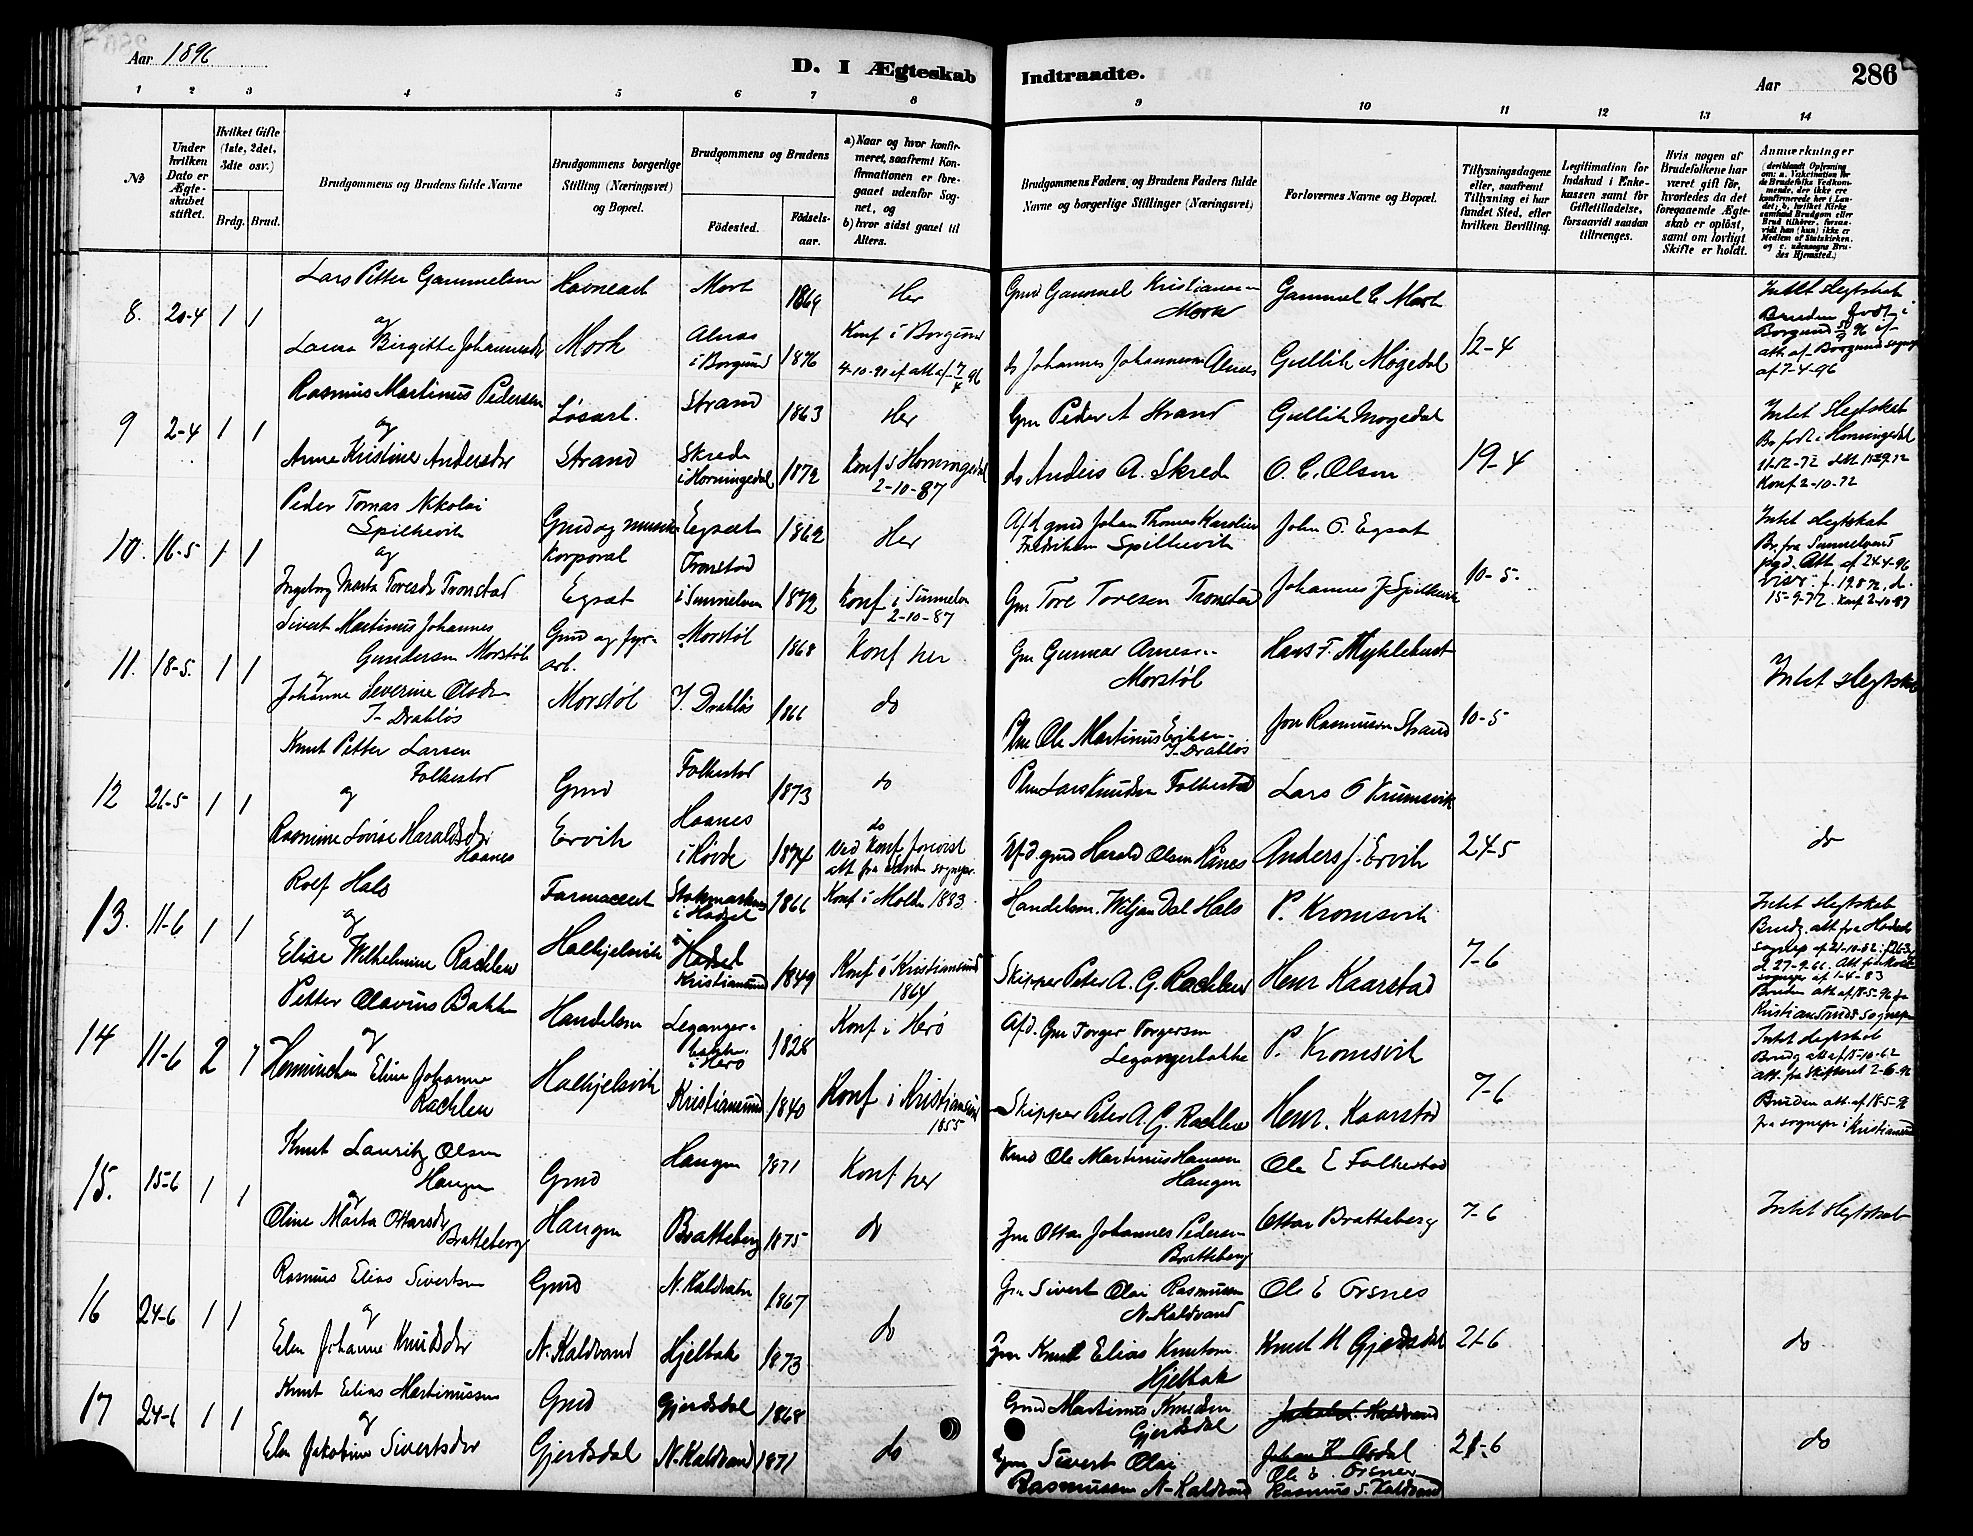 Aar 1896
D. I Ægteskab Indtraadte.
Aar
286
1 2 3 4 5 6 7 8 9 10 11 12 13 14
№
Under hvilken Dato er Ægteskabet stiftet.
Hvilket Gifte (1ste, 2det, 3die osv.)
Brdg. Brud.
Brudgommens og Brudens fulde Navne
Brudgommens borgerlige Stilling (Næringsvei) og Bopæl.
Brudgommens og Brudens
Fødested.
Fødselsaar.
a) Naar og hvor konfirmeret, saafremt Konfirmationen er foregaaet udenfor Sognet, og
b) hvor sidst gaaet til Alters.
Brudgommens Faders, og Brudens Faders fulde Navne og borgerlige Stillinger (Næringsvei)
Forlovernes Navne og Bopæl.
Tillysningsdagene eller, saafremt Tillysning ei har fundet Sted, efter hvilken Bevilling.
Legitimation for Indskud i Enkekassen samt for Giftetilladelse, forsaavidt saadan tiltrænges.
Hvis nogen af Brudefolkene har været gift før, hvorledes da det foregaaende Ægteskab er opløst, samt om lovligt Skifte er holdt.
Anmærkninger
8. 20-4 1 1
Lars Petter Gammelsen
og
Laura Birgitte Johannesdr
Havneart
Mork
Mork 1869
Alnes i Borgund 1876
Her
Konf i Borgund
4-10-91 ef att af 7/4 96
Gmd Gammel Kristiansen Mork
do Johannes Johannesen Alnes
Gammel C Mork
Gullik Mogedal
12-4
Intet slegtskab
Bruden født i
Borgund
att af Borgunds sognepr
af 7-4-96
9 2-4 1 1
Rasmus Martinus Pedersen
og
Anne Kristine Andersdr
Løsarb.
Strand
Strand 1863
Skrede i Horningedal 1872
Her
Konf i Horningedal
2-10-87
Gm Peder A Strand
do Anders A. Skred
Gullik Mogedal
O. C. Olsen
19-4
Intet slegtskab
Br. født i Horningedal
Konf 2-10-72
10. 16-5 1 1
Peder Tomas Nikolai
Spilkevik
og
Ingeborg Marta Toresdr Tronstad
Gmd og musik
Korporal
Egsæt
Egsæt 1862
Tronstad
i Sunnelven 1872
Her
Konf i Sunnelv
2-10-87
Afd gmd Johan Thomas Karolius
Fredriksen Spilkevik
Gm Tore Toresen Tronstad
John O. Egsæt
Johannes J Spilkevik
10-5.
Intet slegtskab
Br. fra Sunnelvens
pgd. Att af 24-4-96
15-9-72. Konf 2-10-87
11. 18-5. 1 1
Sivert Martinus Johannes
Gundersen Morstøl
og
Johanne Severine Olsdr
I- Drabløs
Gmd og fyr-
arb.
Morstøl
Morstøl 1868
I. Drabløs 1866
Konf her
do
Gm Gunnar Arnesen
Morstøl
Plm Ole Martinus Eriksen
I-Drabløs
Hans F. Myklebust
Jon Rasmussen Strand
10-5
Intet slegtskab
12 26-5 1 1
Knut Petter Larsen
Folkestad
og
Rasmine Lovise Haraldsdr
Haanes
Gmd
Ervik
Folkestad 1873
Haanes
i Rovde 1874
do
do
Ved Konf forevist
att fra sognepr.
Plm Lars Knudsen Folkestad
Afd gmd Harald Olsen Hånes
Lars O Krumsvik
Anders J. Ervik
24-5
do
13. 11-6 1 1
Rolf Hals
og
Elise Wilhelmine Rachlew
Farmaceut
Halkjelsvik
Stokmarknes
i Hadsel 1866
Kristiansund 1849
Konf i Molde 1883
Konf i Kristiansund
1864
Handelsm. Wiljam Dal Hals
Skipper Peter A. G. Rachlew
P. Kromsvik
Henr Kaarstad
7-6
Intet slegtskab
Brudg. att fra Hadsels
sognepr af 21-10-82
sognepr af 1-4-83
Bruden att af 18-5-96 fra
Kristiansunds sognepr
14 11-6 2 1
Petter Olavius Bakke
og
Henrikken Eline Johanne
Rachlew
Handelsm
Halkjelsvik
Leganger-
bakke
i Herø 1828
Kristiansund 1840
Konf i Herø
Konf i Kristiansund
1855
Afd. Gm Torger Torgersen
Legangerbakke
Skipper Peter A. G. Rachlew
P. Kromsvik
Henr. Kaarstad
7-6
Intet slegtskab
Brudg att af 15-10-62
att. fra skifteret 2-6-96
Bruden att. af 18-5-96
fra sognepr i Kristiansund
15. 15-6 1 1
Knut Lauritz Olsen
Haugen
og
Oline Marta Ottarsdr
Bratteberg
Gmd
Haugen
Haugen 1871
Bratteberg 1875
Konf her
do
Kmd Ole Martinus Hansen
Haugen
Gm Ottar Johannes Pedersen
Bratteberg
Ole E Folkestad
Ottar Bratteberg
7-6
Intet slegtskab
16 24-6 1 1
Rasmus Elias Sivertsen
og
Elen Johanne Knudsdr
Gmd
N. Kaldvand
N. Kaldvatn 1867
Hjelbak 1873
do
Gm Sivert Olai Rasmussen
N. Kaldvand
Gm Knut Elias Knutsen
Hjelbak
Ole E Orsnes
Knut M Gjerdsdal
21-6
do
17 24-6 1 1
Knut Elias Martinussen
og
Elen Jakobine Sivertsdr
Gmd
Gjerdsdal
Gjerdsdal 1868
N. Kaldvand 1871
do
Gmd Martinus Knudsen
Gjerdsdal
Gm Sivert Olai
Rasmussen N-Kaldvand
Ole E. Orsnes
Rasmus S. Kaldvand
21-6
do